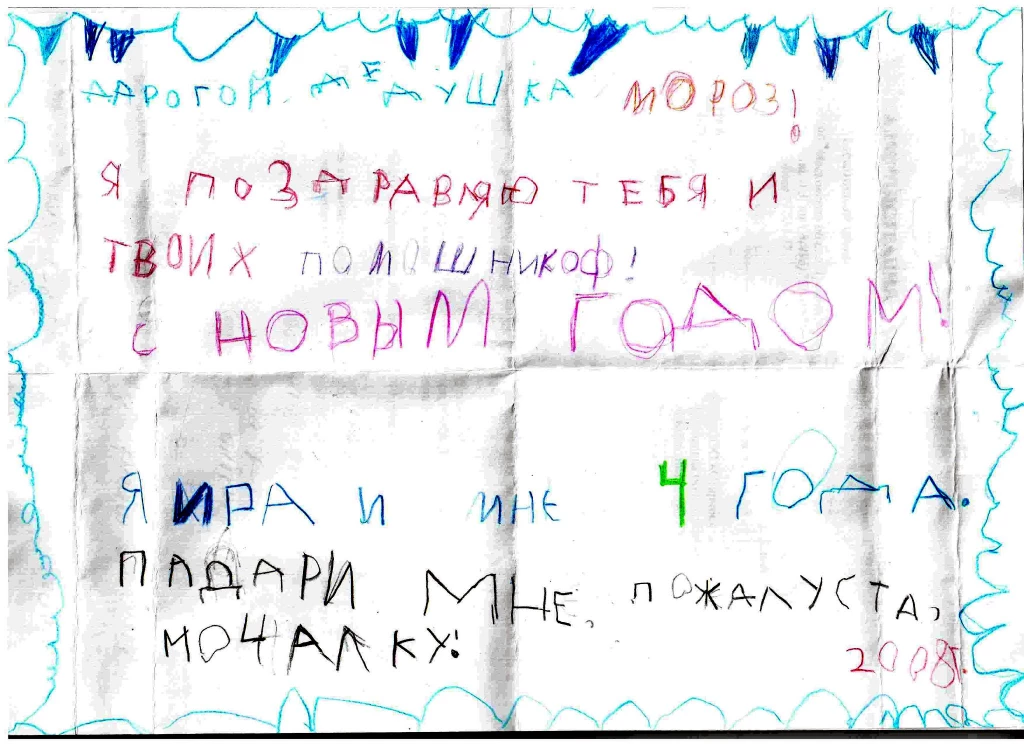 ДАРОГОЙ ДЕДУШКА МОРОЗ!
Я ПОЗДРАВЛЯЮ ТЕБЯ И
ТВОИХ ПОМОШНИКОФ!
С НОВЫМ ГОДОМ!
Я ИРА И МНЕ 4 ГОДА.
ПАДАРИ МНЕ, ПОЖАЛУСТА,
МОЧАЛКУ!
2008г.